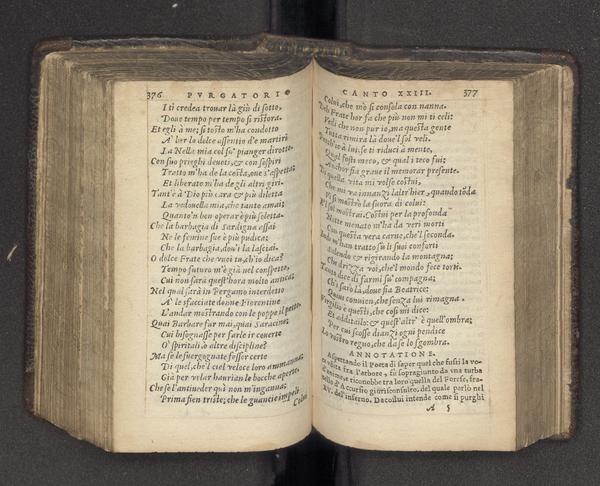 376 PVRGATORIO
I ti credea trouar là giù di sotto,
Doue tempo per tempo si ristora.
Et egli à me; si tosto m'ha condotto
A ber lo dolce assentio d'e martiri
La Nella mia col su' pianger dirotto.
Con suo prieghi deuoti, & con sospiri
Tratto m'ha de la costa, oue s'aspetta;
Et liberato m'ha de gli altri giri.
Tant'è à Dio più cara & più diletta
La vedouella mia, che tanto amai;
Quanto'n ben operar è più soletta.
Che la barbagia di Sardigna assai
Ne le femine sue è più pudica;
Che la barbagia, dou'i la lasciai.
O dolce Frate che vuoi tu, ch'io dica?
Tempo futuro m'è già nel conspetto,
Cui non sarà quest'hora molto antica;
Nel qual sarà in Pergamo interdetto
A' le sfacciate donne Fiorentine
L'andar mostrando con le poppe il petto.
Quai Barbare fur mai, quai Saracine;
Cui bisognasse per farle ir couerte
O' spiritali, ò altre discipline?
Ma se le suergognate fosser certe
Di quel, che'l ciel veloce loro ammanna;
Già per vrlar haurian le bocche aperte.
Che se l'antiueder quì non m'inganna;
Prima fien triste; che le guancie impeli
Colui
CANTO XXIII. 377
Colui, che mò si consola con nanna.
Deh Frate hor fa che più non mi ti celi:
Vedi che non pur io, ma questa gente
Tutta rimira là doue'l sol veli.
à lui: se ti riduci à mente,
Qual fosti meco, & qual i teco fui;
Anchor fia graue il memorar presente.
Di quella vita mi volse costui,
Che mi va innanzi l'altr'hier, quando tonda
Vi si mostrò la suora di colui:
E'l sol mostrai. Costui per la profonda
Notte menato m'ha da veri morti
Con questa vera carne, che'l seconda.
Indi m'han tratto sù li suoi conforti
Salendo & rigirando la montagna;
Che drizza voi, che'l mondo fece torti.
Tanto dice di farmi su' compagna;
Ch'i sarò là, doue fia Beatrice:
Quiui conuien, che senza lui rimagna.
Virgilio è questi, che così mi dice:
Et additailo: & quest'altr' è quell'ombra;
Per cui scosse dianzi ogni pendice
Lo vostro regno, che da se lo sgombra.
ANNOTATIONE.
Aspettando il Poeta di saper quel che fussi la voce
vdita fra l'arbore, fu sopragiunto da vna turba
d'anime, et riconobbe tra loro quella del Forese, fratello
d'Accursio giurisconsulto, del quale parlò nel
XV. del'inferno. Da costui intende come si purghi
A 5